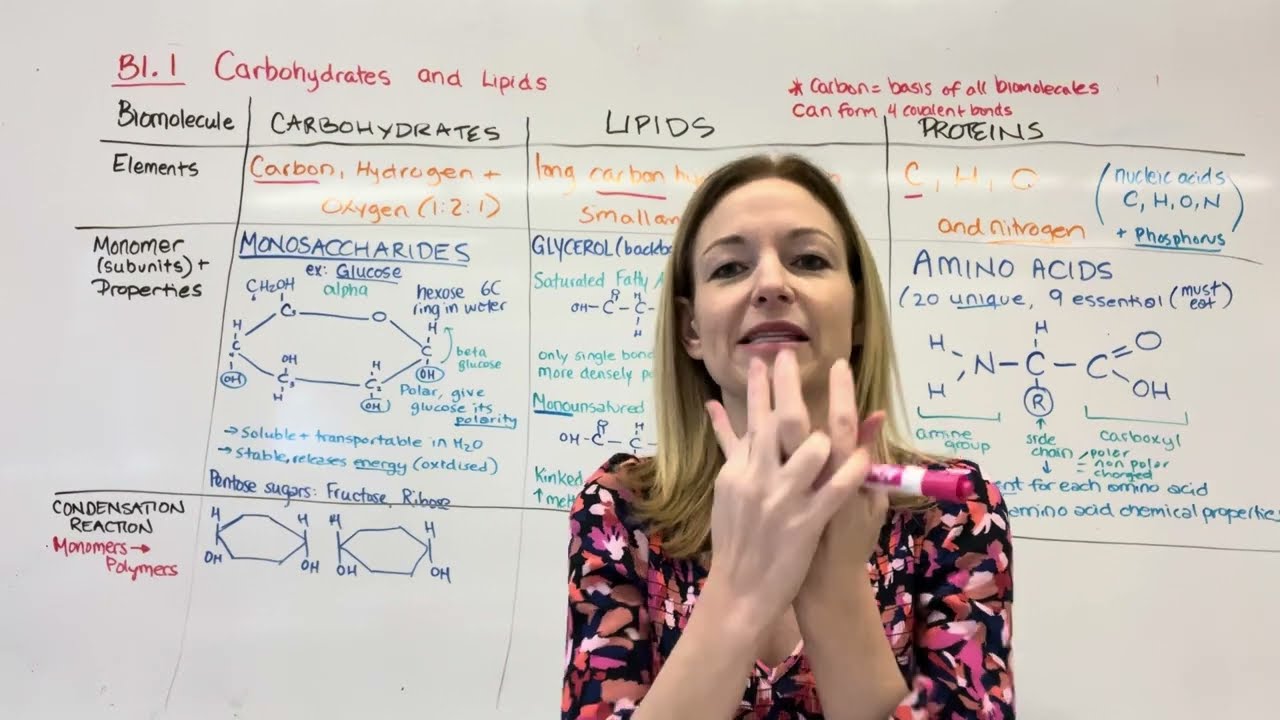 B1.1 Carbohydrates and Lipids
* Carbon = basis of all biomolecules
can form 4 covalent bonds
Biomolecule
CARBOHYDRATES
LIPIDS
PROTEINS
Elements
Carbon, Hydrogen +
Oxygen (1:2:1)
long carbon
small
C, H, O
and nitrogen
(nucleic acids
C, H, O, N)
+ Phosphorus
Monomer
(subunits) +
Properties
MONOSACCHARIDES
ex: Glucose
alpha
hexose 6C
ring in water
CH2OH
C
O
H
C
OH
OH
C
H
H
C
OH
H
C
OH
beta
glucose
Polar, give
glucose its
polarity
→ Soluble + transportable in H2O
→ Stable, releases energy (oxidised)
Pentose sugars: Fructose, Ribose
GLYCEROL
Saturated Fatty
OH-C-C-
O
H
H
only single
more densely
Monounsatured
OH-C-C-
O
H
Kinked
↑
AMINO ACIDS
(20 unique, 9 essential (must
eat)
H
H
N-C-C
H
R
O
OH
amine
group
↑
side
chain
↓
= polar
= non polar
= charged
carboxyl
for each amino acid
amino acid chemical properties
CONDENSATION
REACTION
Monomers →
Polymers
H H H H
OH OH OH OH